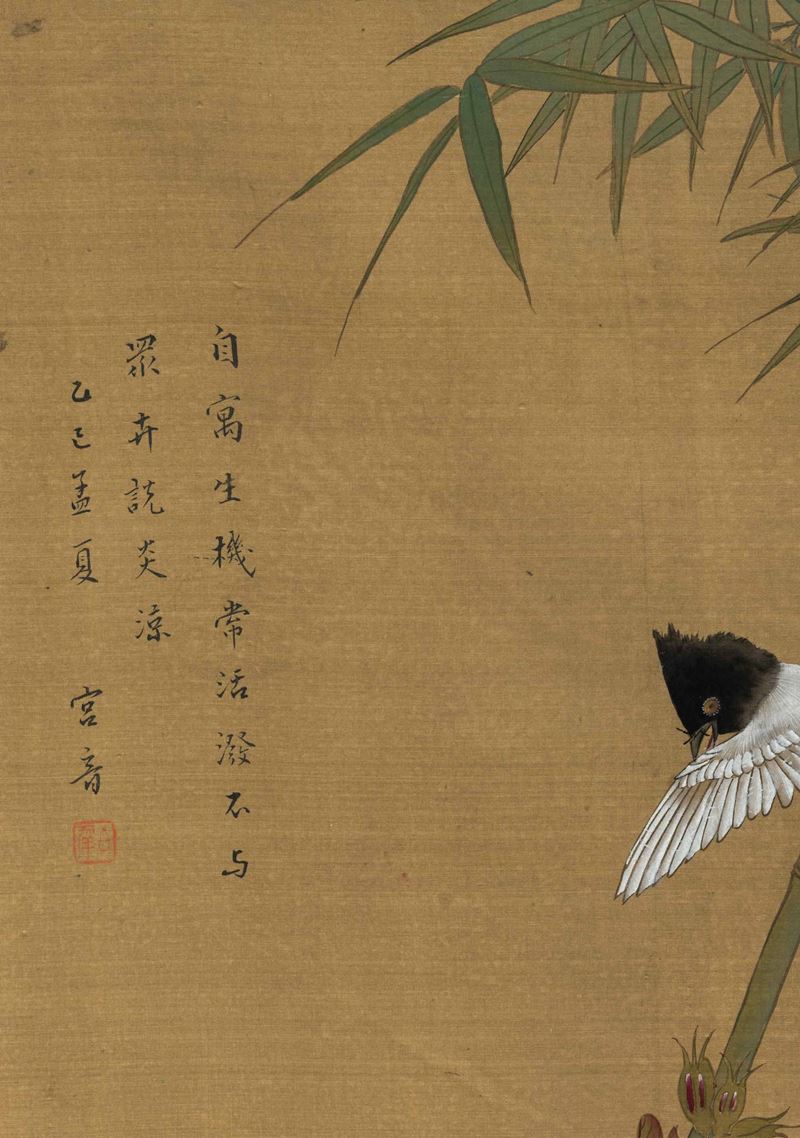 自寓生機常活潑不与
眾卉説炎涼
乙巳孟夏
宮音